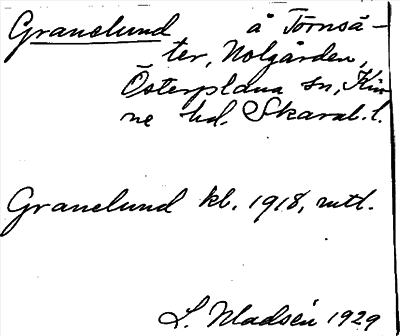 Granelund å Törnsä-
ter, Nolgården,
Österplana sn, Kin
ne hd. Skarab. l.
Granelund kb. 1918, mtl.
L. Madsén 1929